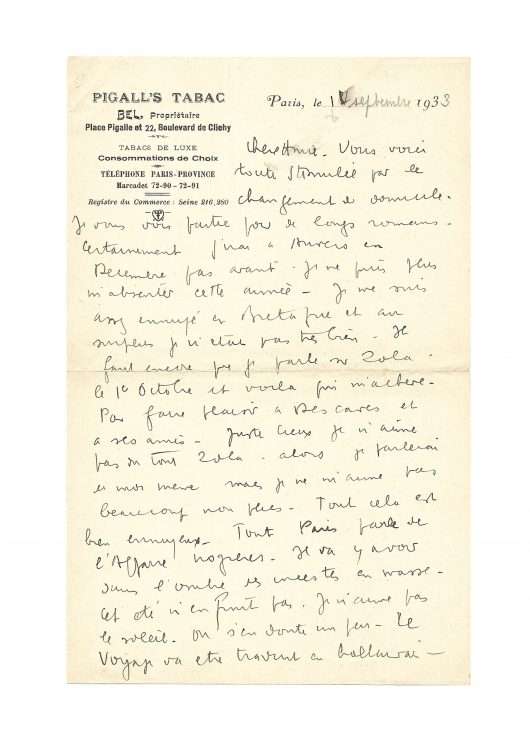 PIGALL'S TABAC
BEL, Propriétaire
Place Pigalle et 22, Boulevard de Clichy
TABACS DE LUXE
Consommations de Choix
TÉLÉPHONE PARIS-PROVINCE
Marcadet 72-90 - 72-91
Registre du Commerce : Seine 216,250
Paris, le 1 septembre 1933
Chère Annie. Vous voici
toute stimulée par le
changement de domicile.
Je vous vois partie pour de longs romans.
Certainement j'irai à Anvers en
Decembre pas avant. Je ne puis plus
m'absenter cette année - Je me suis
assez ennuyé en Bretagne et au
surplus je n'étais pas très bien. Il
faut encore que je parle sur Zola.
le 1er Octobre et voila qui m'achève.
Pour faire plaisir à Descaves et
a ses amis - Juste cieux je n'aime
pas du tout Zola. alors je parlerai
de moi meme mais je ne m'aime pas
beaucoup non plus. Tout cela est
bien ennuyeux. Tout Paris parle de
l'Affaire Nozières. Il va y avoir
dans l'ombre des incestes en masse.
Cet été n'en finit pas. Je n'aime pas
le soleil. On s'en doute un peu. Le
Voyage va etre traduit en